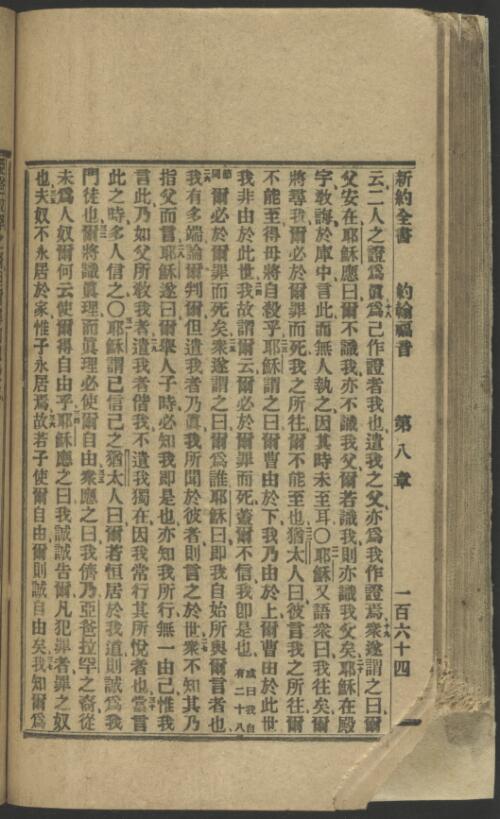 新約全書 約翰福音 第八章 一百六十四
云二人之證爲眞爲己作證者我也遣我之父亦爲我作證焉衆遂謂之曰爾
父安在耶穌應曰爾不識我亦不識我父爾若識我則亦識我父矣耶穌在殿
宇敎誨於庫中言此而無人執之因其時未至耳〇耶穌又語衆曰我往矣爾
將尋我爾必於爾罪而死我之所往爾不能至也猶太人曰彼言我之所往爾
不能至得毋將自殺乎耶穌謂之曰爾曹由於下我乃由於上爾曹由於此世
我非由於此世我故謂爾云爾必於爾罪而死蓋爾不信我卽是也或曰我自有二十八
節同爾必於爾罪而死矣衆遂謂之曰爾爲誰耶穌曰卽我自始所與爾言者也
我有多端論爾判爾但遣我者乃眞我所聞於彼者則言之於世衆不知其乃
指父而言耶穌遂曰爾舉人子時必知我卽是也亦知我所行無一由己惟我
言此乃如父所敎我者遣我者偕我不遺我獨在因我常行其所悅者也當言
此之時多人信之〇耶穌謂已信己之猶太人曰爾若恒居於我道則誠爲我
門徒也爾將識眞理而眞理必使爾自由衆應之曰我儕乃亞爸拉罕之裔從
未爲人奴爾何云使爾得自由乎耶穌應之曰我誠誠告爾凡犯罪者罪之奴
也夫奴不永居於家惟子永居焉故若子使爾自由爾則誠自由矣我知爾爲